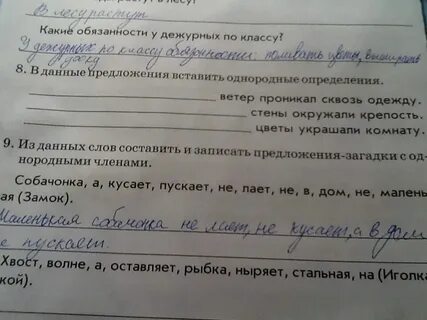 В лесу растут
Какие обязанности у дежурных по классу?
У дежурных по классу обязонности: поливать цветы, вытирать
доску
8. В данные предложения вставить однородные определения.
ветер проникал сквозь одежду.
стены окружали крепость.
цветы украшали комнату.
9. Из данных слов составить и записать предложения-загадки с од-
нородными членами.
Собачонка, а, кусает, пускает, не, лает, не, в, дом, не, малень
ая (Замок).
Маленькая собачонка не лает, не кусает, а в дом
е пускает.
Хвост, волне, а, оставляет, рыбка, ныряет, стальная, на (Иголка
кой).